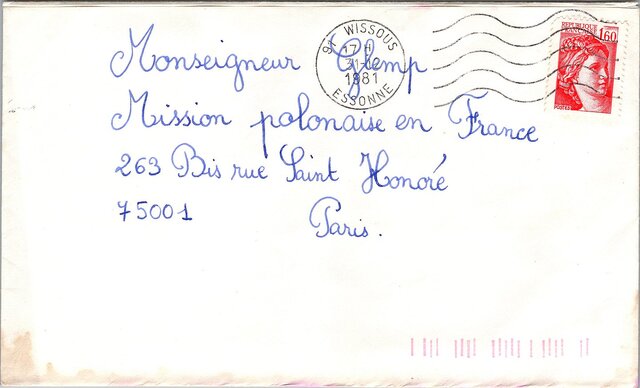 91 WISSOUS
17 H
31-12
1981
ESSONNE
REPUBLIQUE
FRANÇAISE
1,60
POSTES
Monseigneur Glemp
Mission polonaise en France
263 Bis rue Saint Honoré
75001 Paris.